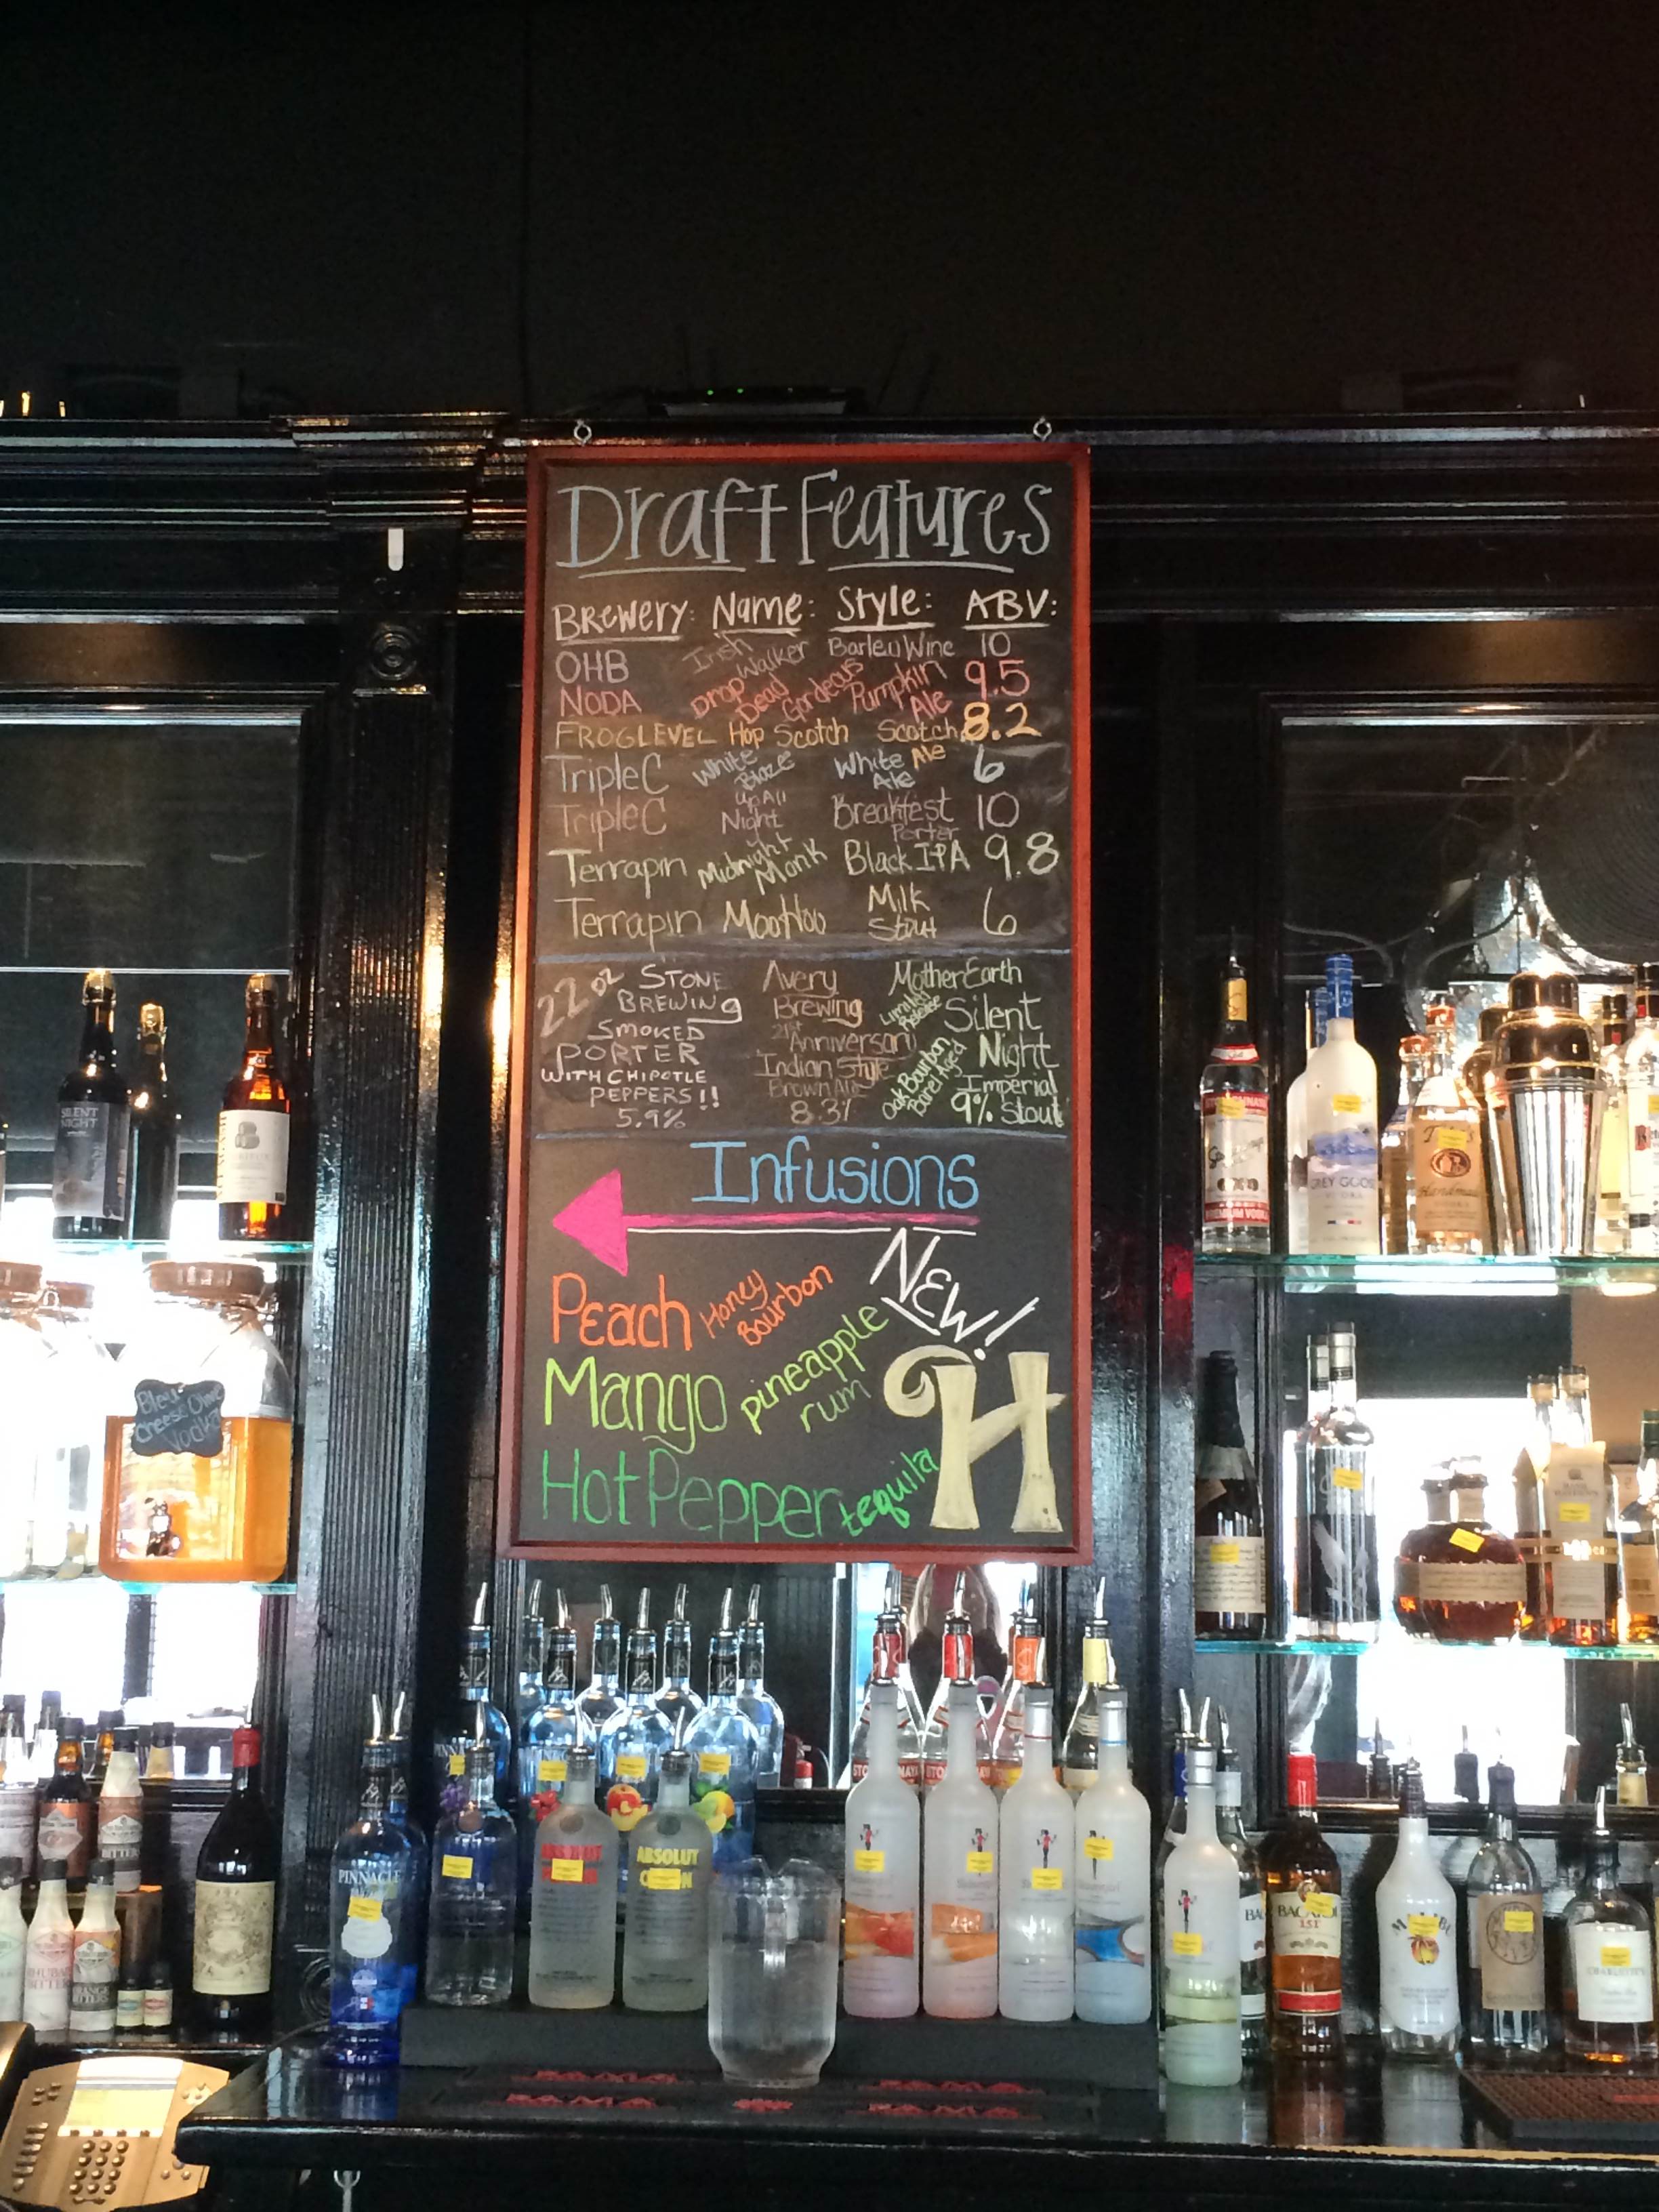 Draft Features
Brewery: Name: Style: ABV:
OHB Irish Walker Barley Wine 10
NODA Drop Dead Gordeous Pumpkin Ale 9.5
FROGLEVEL Hop Scotch Scotch Ale 8.2
TripleC White Blaze White Ale 6
TripleC Up All Night Breakfest Porter 10
Terrapin Midnight Monk Black IPA 9.8
Terrapin MooHoo Milk Stout 6
22 oz
STONE
BREWING
SMOKED
PORTER
WITH CHIPOTLE
PEPPERS!!
5.9%
Avery
Brewing
21st
Anniversary
Indian Style
Brown Ale
8.3%
Mother Earth
Limited Release
Silent
Night
Oak Bourbon
Barrel Aged
Imperial
9% Stout
Infusions
NEW!
Peach Honey Bourbon
Mango pineapple rum
Hot Pepper tequila
H
SILENT
NIGHT
Bleu
Cheese Olive
Vodka
GREY GOOSE
VODKA
Handmade
PINNACLE
ABSOLUT
ABSOLUT
BACARDI
151
MALIBU
RHUBARB
BITTERS
ORANGE
BITTERS
BITTERS